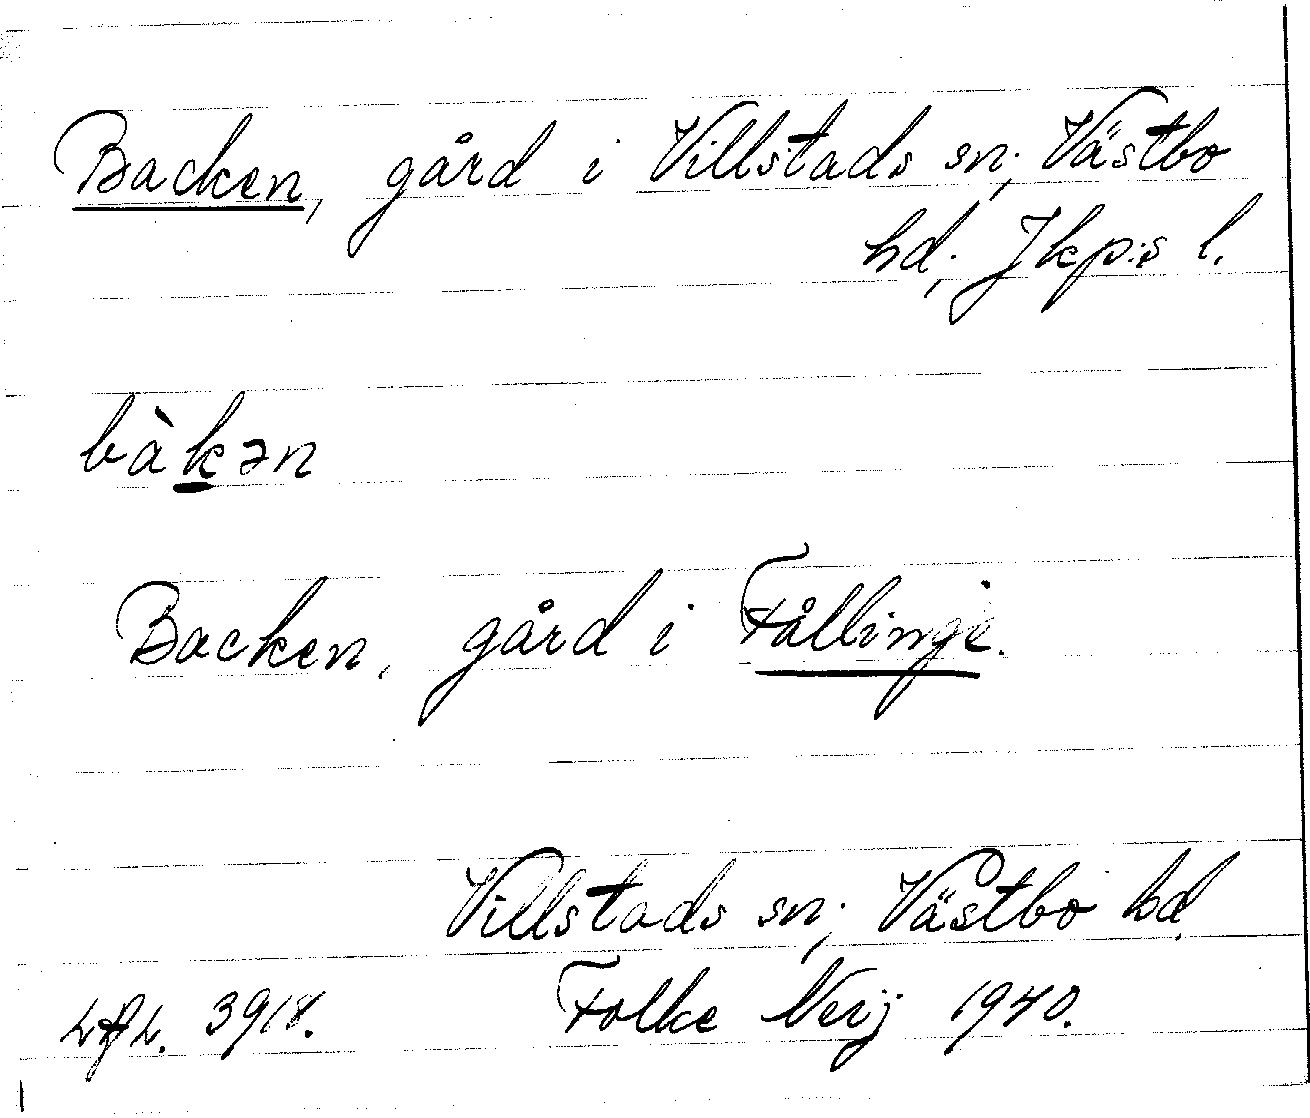 Backen, gård i Villstads sn., Västbo
hd., Jkp:s l.
bàkən
Backen, gård i Fållinge.
Villstads sn., Västbo hd.
3918. Folke Nerij 1940.